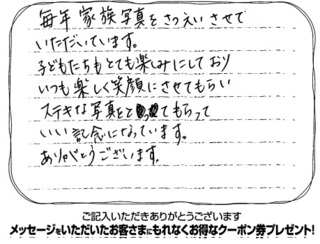 毎年家族写真をさつえいさせて
いただいています。
子どもたちもとても楽しみにしており
いつも楽しく笑顔にさせてもらい
ステキな写真をとってもらって
いい記念になっています。
ありがとうございます。
ご記入いただきありがとうございます
メッセージをいただいたお客さまにもれなくお得なクーポン券プレゼント!